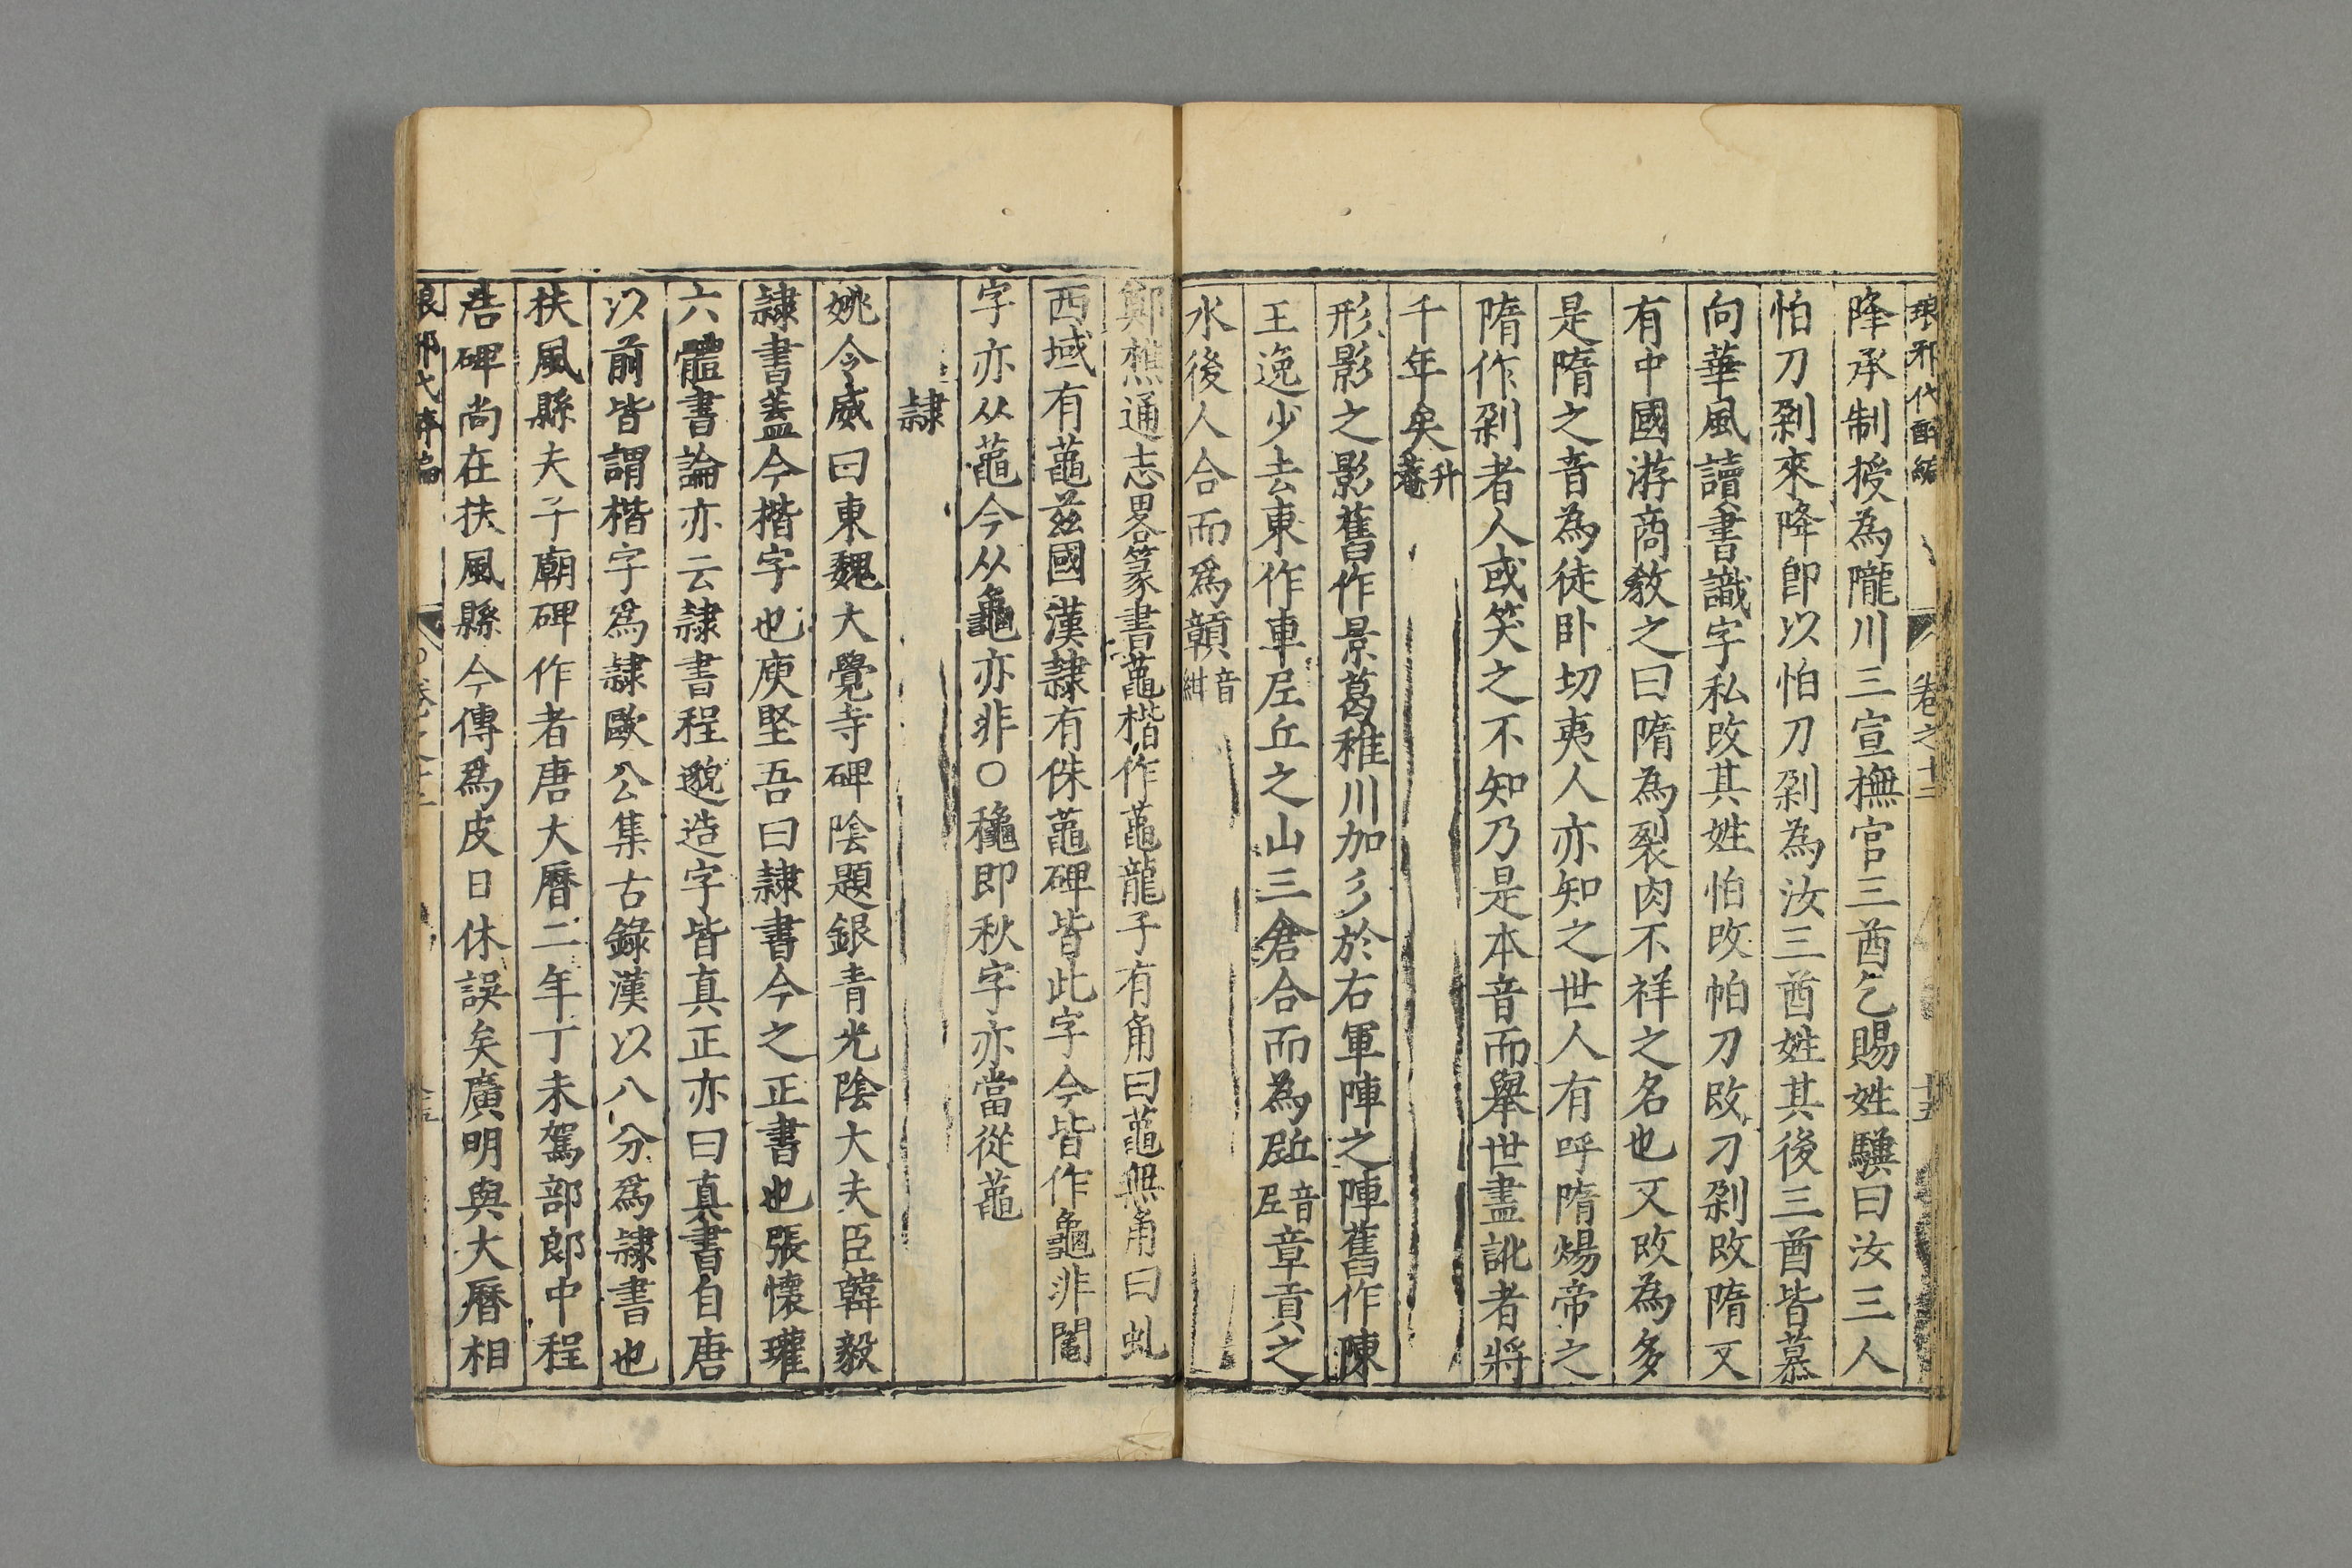 琅邪代醉編 卷之十二 十五
降承制授為隴川三宣撫官三酋乞賜姓驥曰汝三人
怕刀剁來降卽以怕刀剁為汝三酋姓其後三酋皆慕
向華風讀書識字私改其姓怕改帕刀改刁剁改隋又
有中國游商敎之曰隋為裂肉不祥之名也又改為多
是隋之音為徒卧切夷人亦知之世人有呼隋煬帝之
隋作剁者人或笑之不知乃是本音而舉世盡訛者將
千年矣升菴
形影之影舊作景葛稚川加彡於右軍陣之陣舊作陳
王逸少去東作車𡰥丘之山三倉合而為𡰥音𡰥章貢之
水後人合而爲贑音紺
鄭樵通志畧篆書䶰楷作䶰龍子有角曰䶰無角曰虬
西域有䶰茲國漢隸有侏䶰碑皆此字今皆作龜非闔
字亦从䶰今从龜亦非○穐即秋字亦當從䶰
隸
姚令威曰東魏大覺寺碑陰題銀青光陰大夫臣韓毅
隸書蓋今楷字也庾堅吾曰隸書今之正書也張懷瓘
六體書論亦云隸書程邈造字皆真正亦曰真書自唐
以前皆謂楷字爲隸歐公集古錄漢以八分爲隸書也
扶風縣夫子廟碑作者唐大曆二年丁未駕部郎中程
浩碑尚在扶風縣今傳爲皮日休誤矣廣明與大曆相